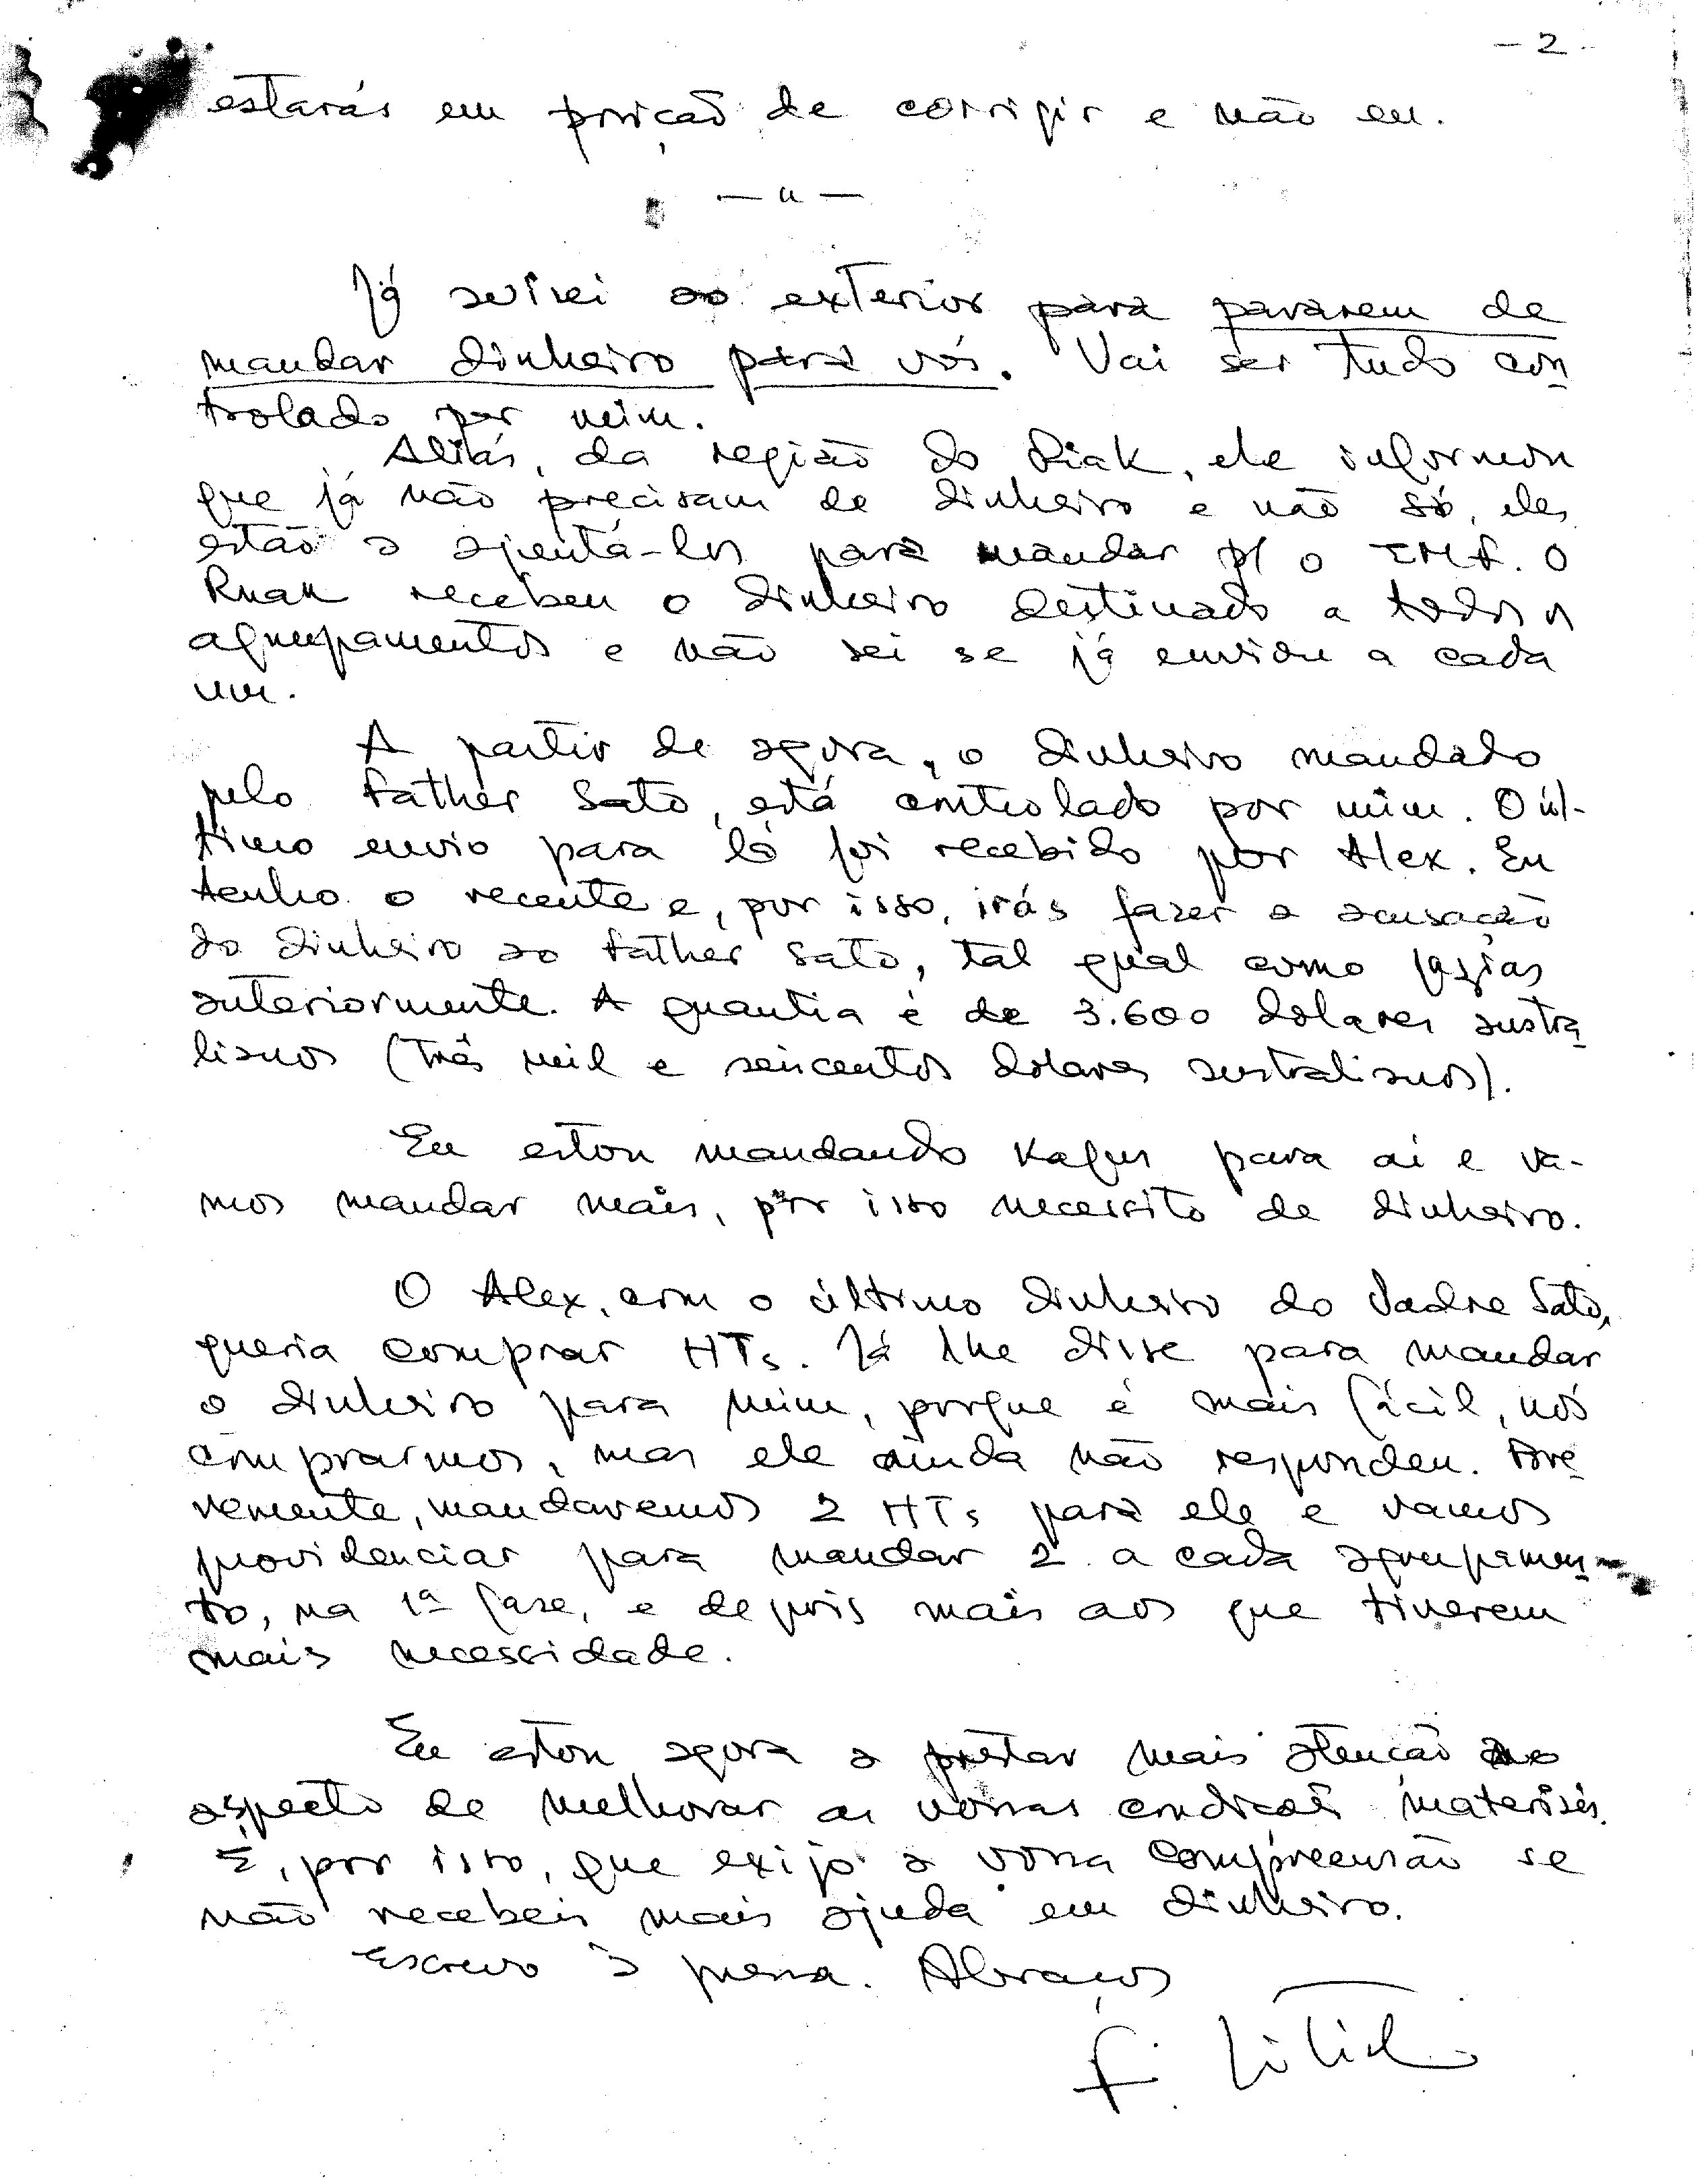 - 2 -
estarás em posição de corrigir e não eu.
— " —
Já avisei ao exterior para pararem de
mandar dinheiro para vós. Vai ser tudo con
trolado por mim.
Aliás, da região do Riak, ele informou
que já não precisam de dinheiro e não só, eles
estão a ajuntá-los para mandar p/ o
Ruak recebeu o dinheiro destinado a todos os
agrupamentos e não sei se já enviou a cada
um.
A partir de agora, o dinheiro mandado
pelo Father Sato, está controlado por mim. O úl-
timo envio para lá foi recebido por Alex. Eu
tenho o recente e, por isso, irás fazer a acusação
do dinheiro ao Father Sato, tal qual como fazias
anteriormente. A quantia é de 3.600 dolares austra
lianos (Três mil e seiscentos dolares australianos).
Eu estou mandando para aí e va-
mos mandar mais, por isso necessito de dinheiro.
O Alex, com o último dinheiro do Padre Sato,
queria comprar HTs. Já lhe disse para mandar
o dinheiro para mim, porque é mais fácil, nós
comprarmos, mas ele ainda não respondeu. Bre
vemente, mandaremos 2 HTs para ele e vamos
providenciar para mandar 2 a cada agrupamen-
to, na 1ª fase, e depois mais aos que tiverem
mais necessidade.
Eu estou agora a prestar mais atenção ao
aspecto de melhorar as vossas condições materiais.
É, por isso, que exijo a vossa compreensão se
não recebeis mais ajuda em dinheiro.
Escrevo à pressa. Abraços